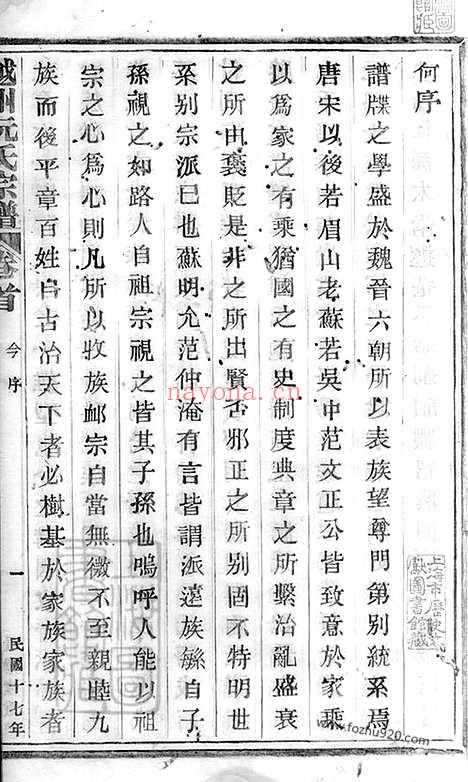 何序
譜牒之學盛於魏晉六朝所以表族望尊門第别統系焉
唐宋以後若眉山老蘇若吳中范文正公皆致意於家乘
以爲家之有乘猶國之有史制度典章之所繫治亂盛衰
之所由褒貶是非之所出賢否邪正之所别固不特明世
系别宗派巳也蘇明允范仲淹有言皆謂派遠族緐自子
孫視之如路人自祖宗視之皆其子孫也嗚呼人能以祖
宗之心爲心則凡所以收族邮宗自當無微不至親睦九
族而後平章百姓自古治天下者必樹基於家族家族者
越州阮氏宗譜 卷首 今序 一 民國十七年
上海市歷史
文獻圖書館藏
nayona.cn
www.fozhu920.com